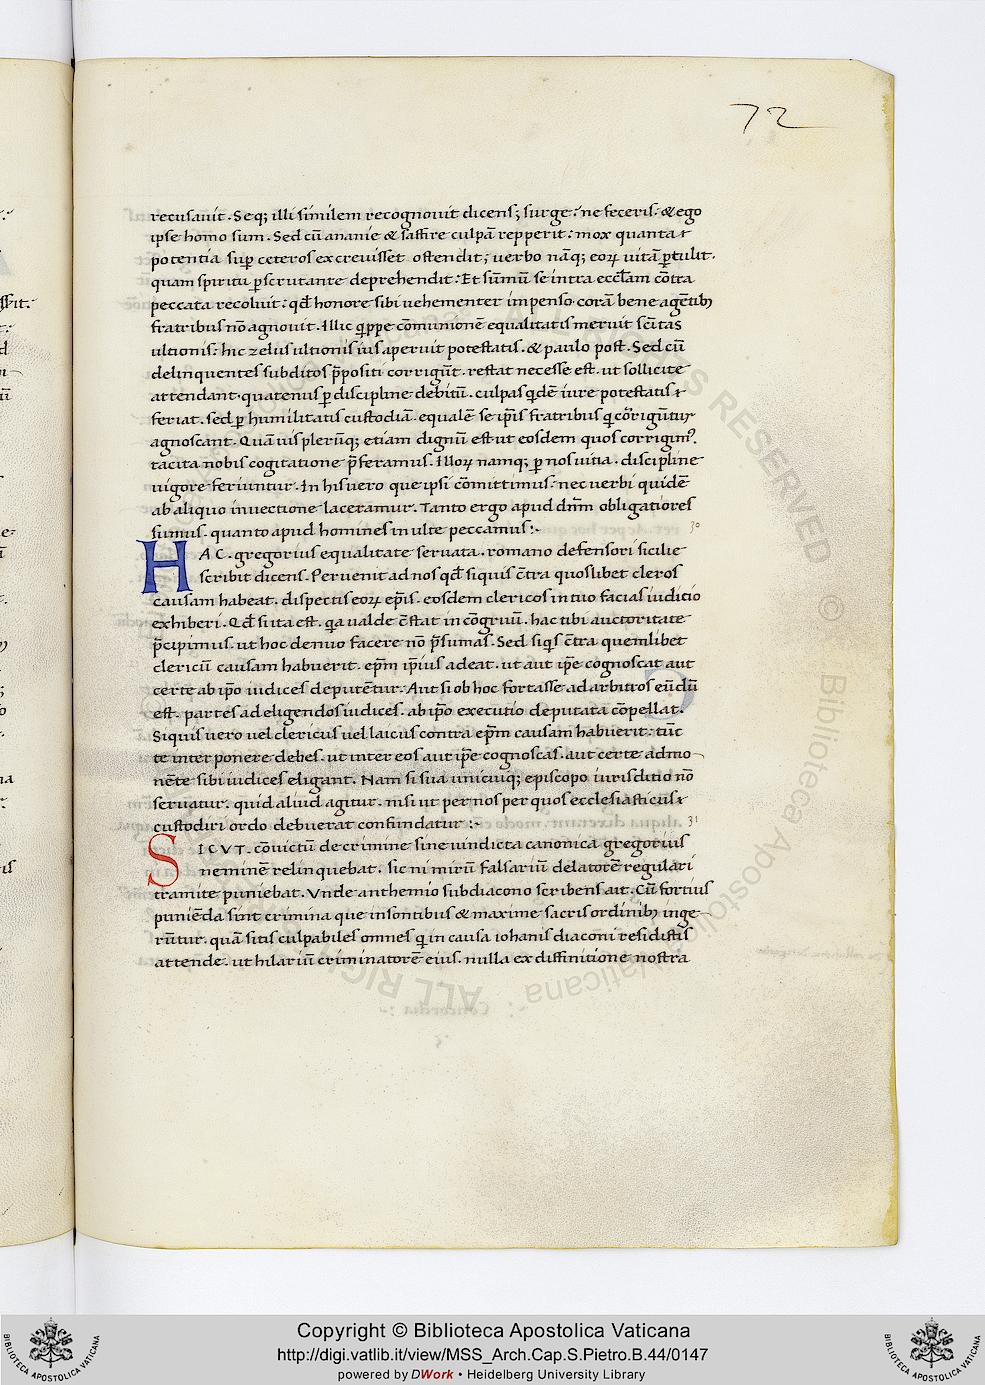 72
recusauit. Seq; illi similem recognouit dicens; surge. ne feceris. & ego
ipse homo sum. Sed cū ananie & saffire culpā repperit: mox quanta
potentia sup̄ ceteros excreuisset ostendit; uerbo nāq; eoꝝ uitā ꝑtulit.
quam spiritu ꝑscrutante deprehendit: Et sūmū se intra eccl̄am cōtra
peccata recoluit: qđ honore sibi uehementer impenso. corā bene agētibꝫ
fratribus nō agnouit. Illic q̄ppe cōmunionē equalitatis meruit sc̄itas
ultionis: hic zelus ultionis ius aperuit potestatis. & paulo post. Sed cū
delinquentes subditos p̄positi corrigūt. restat necesse est. ut sollicite
attendant. quatenus ꝑ discipline debitū. culpas qđē iure potestatis
feriat. sed ꝑ humilitatis custodiā. equalē se ip̄is fratribus q̄ cōrigūtur
agnoscant. Quāuis plerūq; etiam dignū est ut eosdem quos corrigimꝰ.
tacita nobis cogitatione p̄feramus. Illoꝝ namq; ꝑ nos uitia. discipline
uigore feriuntur. In his uero que ipsi cōmittimus. nec uerbi quidē
ab aliquo inuectione laceramur. Tanto ergo apud dn̄m obligatiores
sumus. quanto apud homines inulte peccamus:~
30
HAC. gregorius equalitate seruata. romano defensori sicilie
scribit dicens. Peruenit ad nos qđ siquis c̄tra quoslibet cleros
causam habeat. dispectis eoꝝ ep̄is. eosdem clericos in tuo facias iuditio
exhiberi. Qđ si ita est. q̄a ualde c̄stat in cōgruū. hac tibi auctoritate
p̄cipimus. ut hoc denuo facere nō p̄sumas. Sed siq̄s c̄tra quemlibet
clericū causam habuerit. ep̄m ip̄ius adeat. ut aut ip̄e cognoscat aut
certe ab ip̄o iudices deputētur. Aut si ob hoc fortasse ad arbitros eūdū
est. partes ad eligendos iudices. ab ip̄o executio deputata cōpellat.
Siquis uero uel clericus uel laicus contra ep̄m causam habuerit: tūc
te inter ponere debes. ut inter eos aut ip̄e cognoscas. aut certe admo
nēte sibi iudices eligant. Nam si sua unicuiq; episcopo iurisditio nō
seruatur. quid aliud agitur. nisi ut per nos per quos ecclesiasticus
custodiri ordo debuerat confundatur:~
31
SICVT. cōuictū de crimine sine uindicta canonica gregorius
neminē relinquebat. sic ni mirū falsariū delatorē regulari
tramite puniebat. Vnde anthemio subdiacono scribens aut. Cū fortius
puniēda sint crimina que insontibus & maxime sacris ordinibꝫ inge
rūtur. quā sitis culpabiles omnes q̄ in causa iohanis diaconi residistis
attende. ut hilariū criminatorē eius. nulla ex diffinitione nostra
Copyright © Biblioteca Apostolica Vaticana
http://digi.vatlib.it/view/MSS_Arch.Cap.S.Pietro.B.44/0147
powered by DWork • Heidelberg University Library